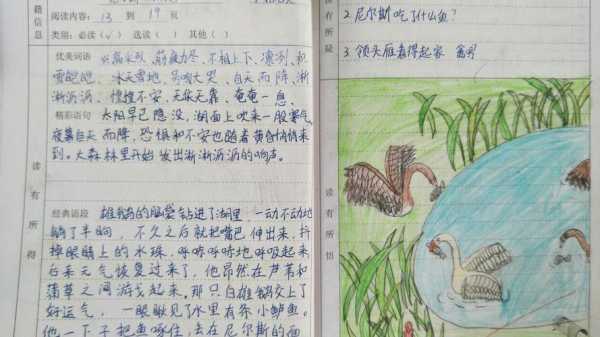 籍
信
息
阅读内容：13 到 19 页
类别：必读（✓） 选读（ ） 其他（ ）
优美词语
筋疲力尽、不相上下、凛冽、
冰天雪地、号啕大哭、自天而降、淅
淅沥沥、惶惶不安、无依无靠、奄奄一息、
精彩语句 太阳早已隐没，湖面上吹来一股寒气，
夜幕自天而降，恐惧和不安也随着黄昏悄悄来
到。大森林里开始发出淅淅沥沥的响声。
读
有
所
得
经典语段 雄鹅的脑袋钻进了湖里，一动不动地
躺了半晌，不久之后就把嘴巴伸出来，抖
掉眼睛上的水珠，呼哧呼哧地呼吸起来
后来元气恢复过来了，他昂然在芦苇和
蒲草之间游弋起来。那只白雄鹅交上了
好运气，一眼瞅见了水里有条小鲈鱼。
他一下子把鱼啄住，去在尼尔斯的面
有
所
疑
2. 尼尔斯吃了什么鱼？
3. 领头雁看得起家
读
有
所
悟